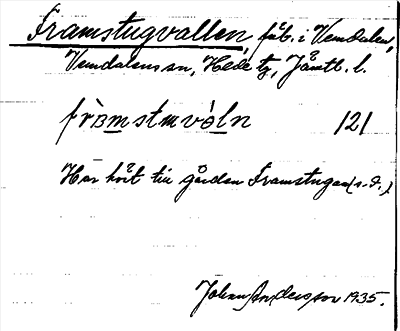 Framstugvallen, fäb. i Vemdalen,
Vemdalens sn, Hede tg, Jämtl. l.
frɷ̀mstʉvɷ̀ln 121
Har hört till gården Framstugan (s.d.)
Johan Andersson 1935.